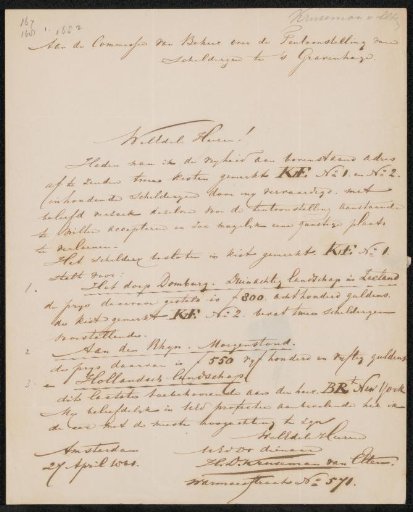 167
Kruseman v. Elten
Aan de Commissie van Beheer voor de Tentoonstelling van
Schilderijen te 's Gravenhage
WelEdel Heeren!
Heden nam ik de vrijheid aan bovenstaand adres
af te zenden twee kisten gemerkt KvE. No 1 en No 2.
inhoudende Schilderijen door mij vervaardigd met
beleefd verzoek voor de tentoonstelling
te willen accepteren en zoo mogelijk een gunstige plaats
te verleenen.
Het Schilderij in kist gemerkt KvE. No 1
stelt voor:
1. Het dorp Domburg. landschap in Zeeland
de prijs daarvan gesteld is ƒ 800 achthonderd guldens.
de kist gemerkt KvE No 2. bevat twee schilderijen
voorstellende.
2 Aan den Rhyn. Morgenstond.
de prijs daarvan is ƒ 550 vijf honderd en vijftig guldens
3 en Hollandsch landschap
dit laatste toebehoorende aan den heer New York
Mij beleefdelijk in UEd protectie aanbevelende heb ik
de eer met de meeste hoogachting te zijn
WelEdele Heeren
Amsterdam UEd Dv dienaar
27 April H. D. Kruseman van Elten.
Warmoesstraat No 571.